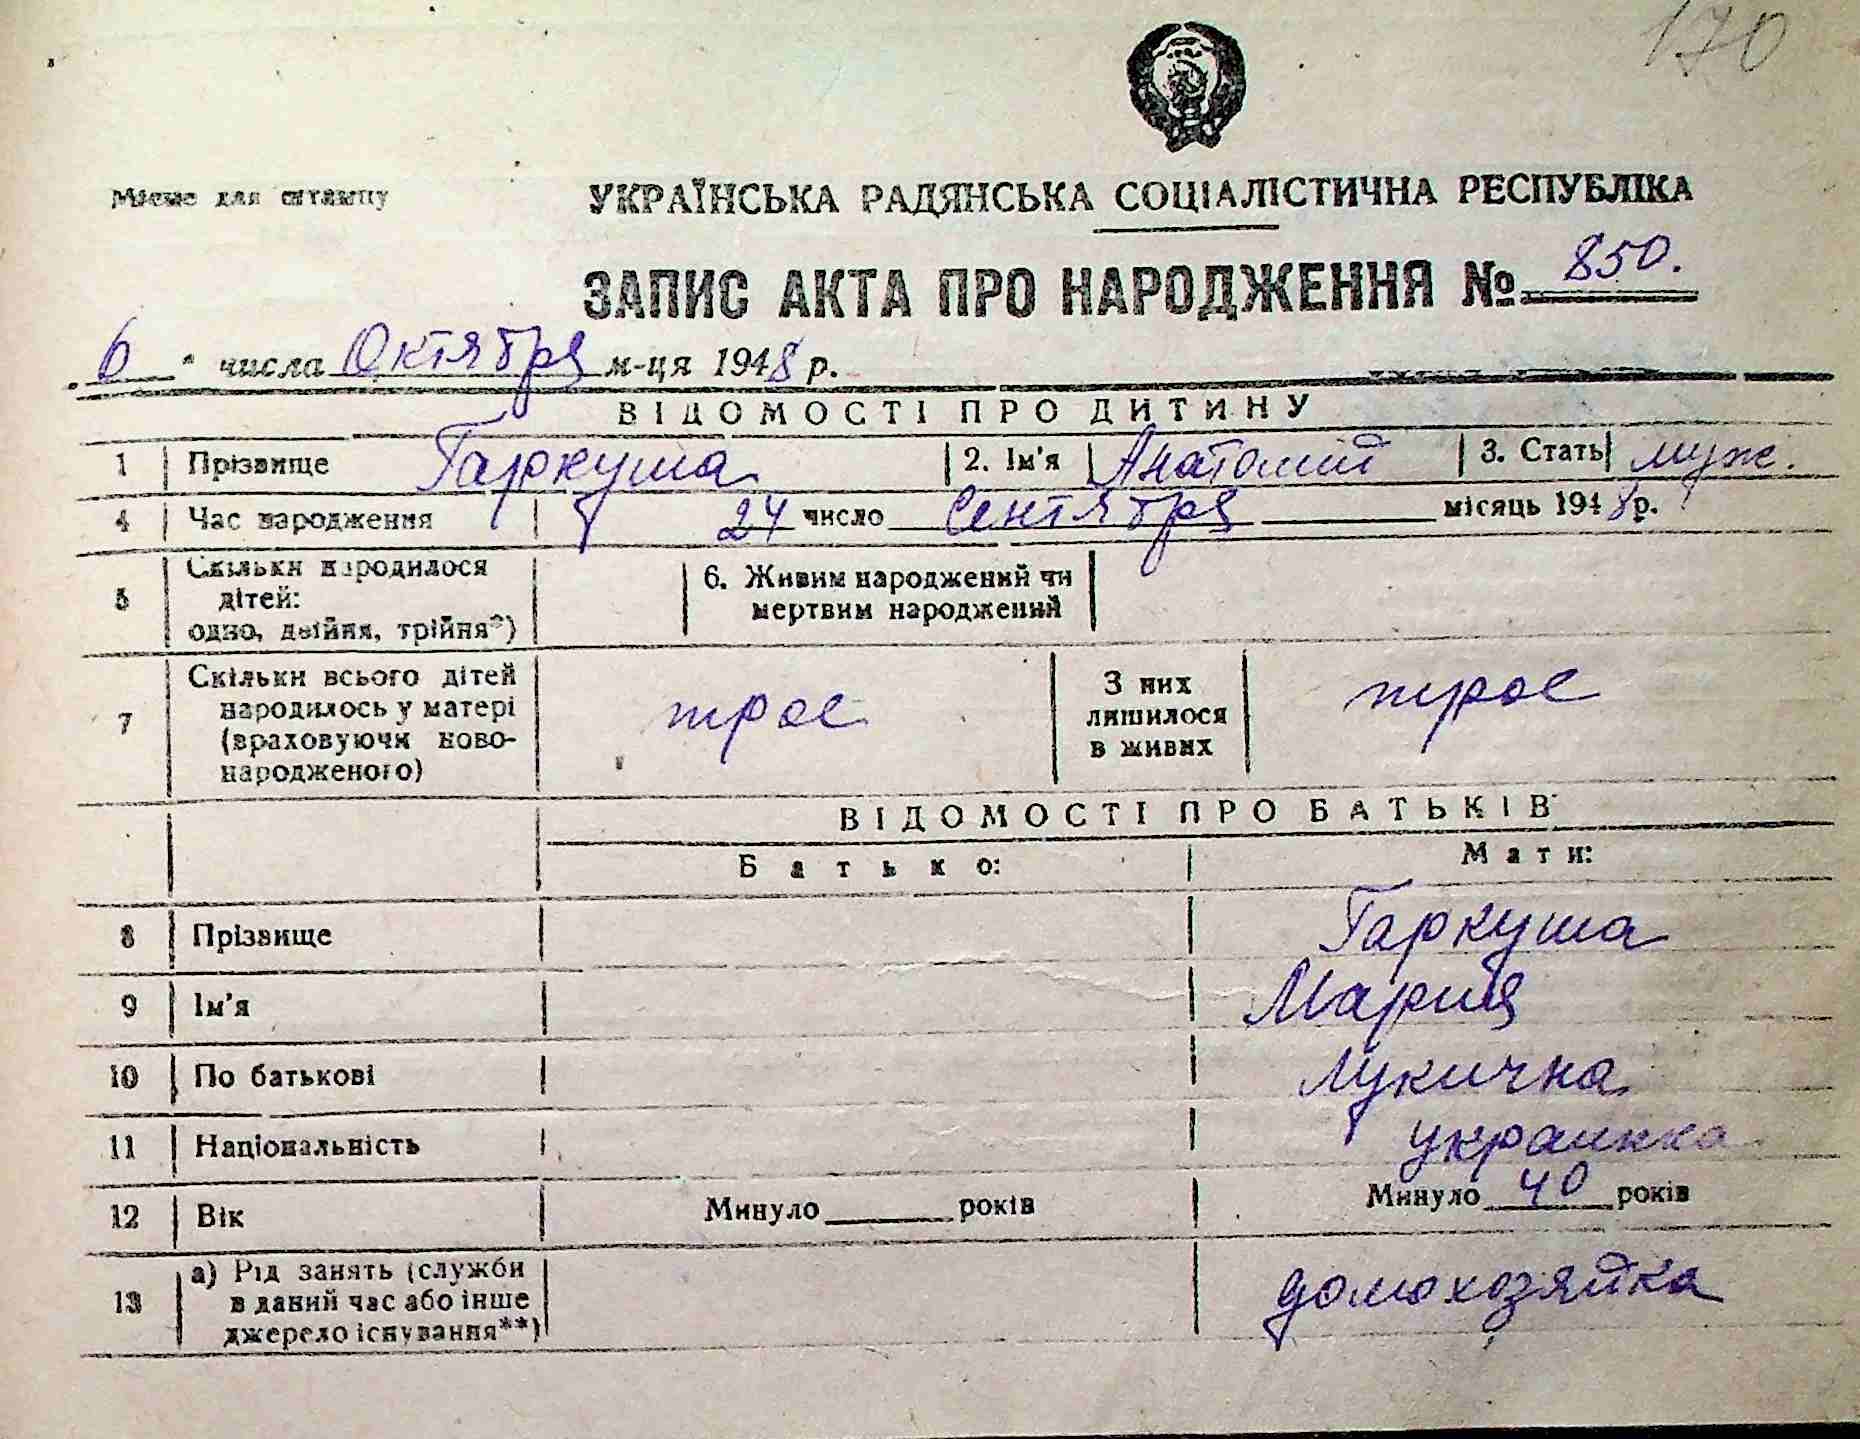 170
Місце для штампу
УКРАЇНСЬКА РАДЯНСЬКА СОЦІАЛІСТИЧНА РЕСПУБЛІКА
ЗАПИС АКТА ПРО НАРОДЖЕННЯ № 850.
„6" числа Октября м-ця 1948 р.
ВІДОМОСТІ ПРО ДИТИНУ
1 Прізвище Гаркуша 2. Ім'я Анатолий 3. Стать муж.
4 Час народження 24 число Сентября місяць 1948 р.
5 Скільки народилося дітей: одно, двійня, трійня*) 6. Живим народжений чи мертвим народжений
7 Скільки всього дітей народилось у матері (враховуючи новонародженого) трое З них лишилося в живих трое
ВІДОМОСТІ ПРО БАТЬКІВ
Батько: Мати:
8 Прізвище Гаркуша
9 Ім'я Мария
10 По батькові Лукична
11 Національність украинка
12 Вік Минуло років Минуло 40 років
13 а) Рід занять (служби в даний час або інше джерело існування**) домохозяйка